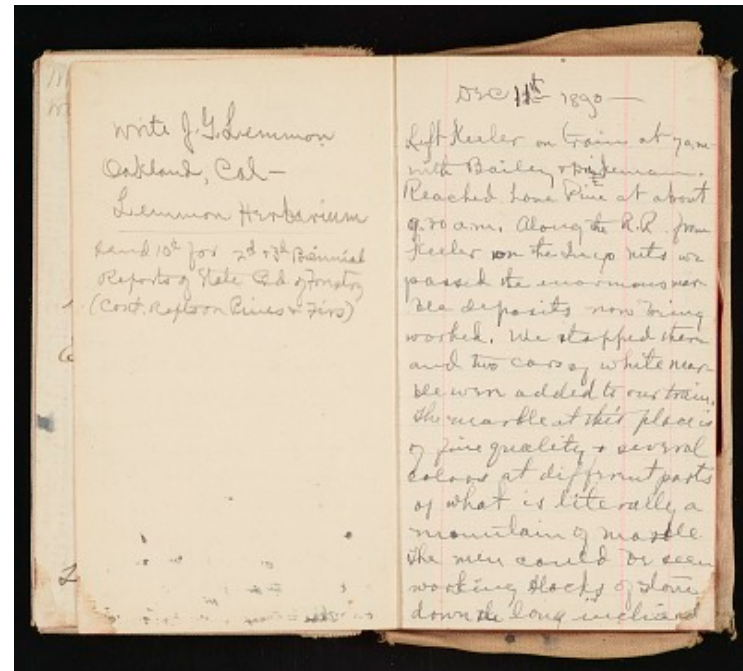 Write J.G. Lemmon
Oakland, Cal—
Lemmon Herbarium
Send 10¢ for 2d & 3d Biennial
Reports of State Bd. of Forestry
(Cont. Repts on Pines & Firs)
Dec 11th 1890—
Left Keeler on train at 7 a.m.
with Bailey &
Reached Lone Pine at about
9.30 a.m. Along the R.R. from
Keeler on the Inyo mts we
passed the enormous mar-
ble deposits now being
worked. We stopped there
and two cars of white mar-
ble were added to our train.
The marble at this place is
of fine quality & several
colors at different parts
of what is literally a
mountain of marble
The men could be seen
working blocks of stone
down the long inclined